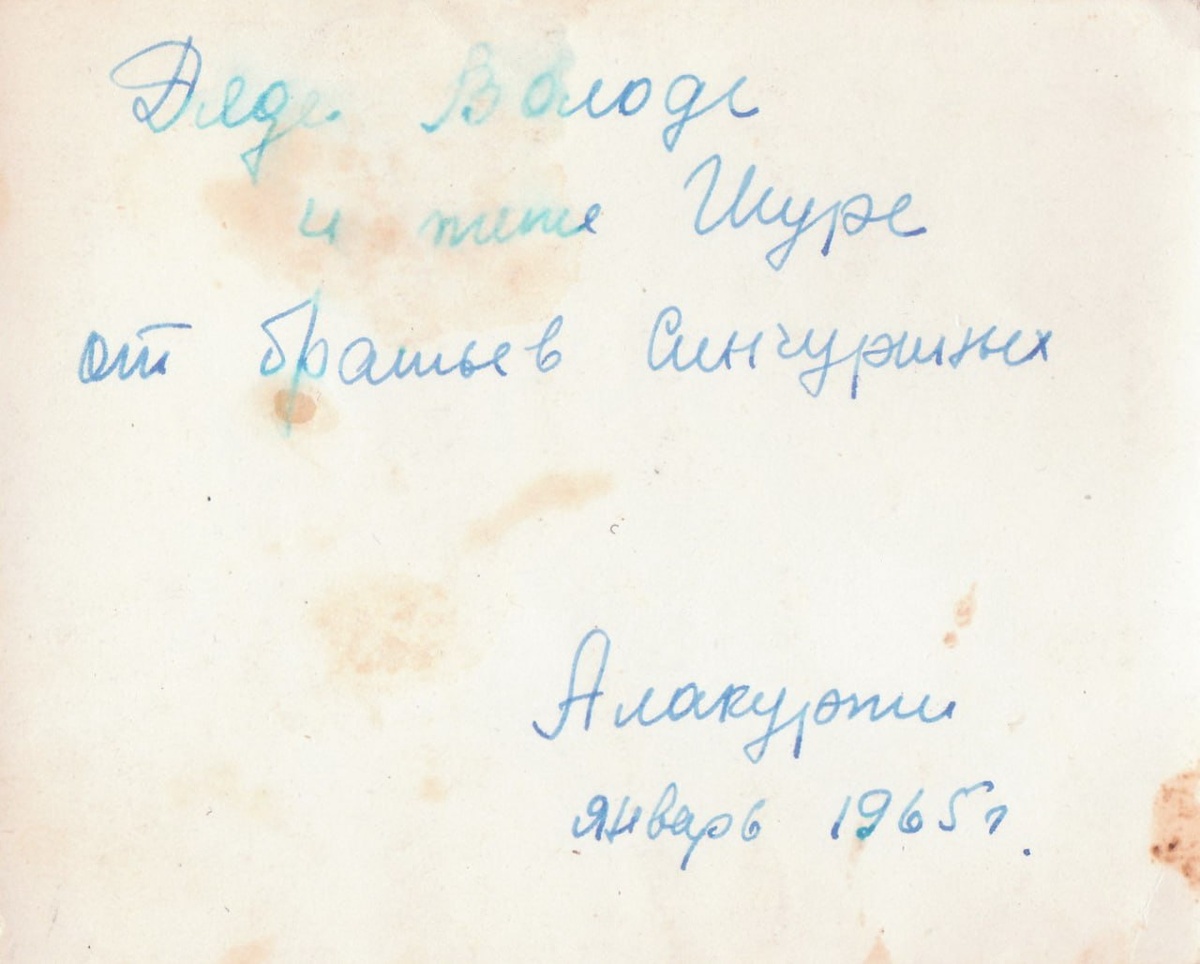 Дяде Володе
и тете Шуре
от братьев Синчуриных
Алакуртти
январь 1965г.